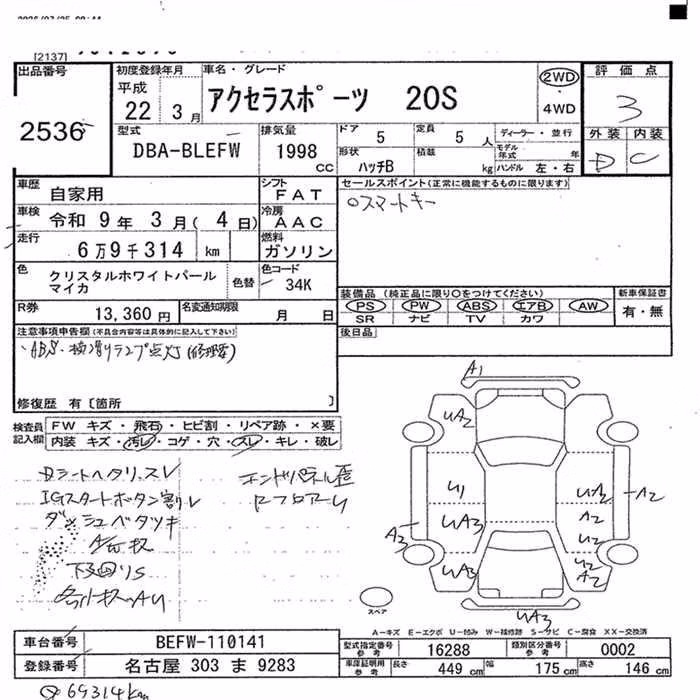 [2137]
出品番号 初度登録年月 車名・グレード 2WD 評価点
平成 22 3月 アクセラスポーツ 20S 4WD 3
2536 外装 内装
型式 排気量 ドア 5 定員 5人 ディーラー・並行 D C
DBA-BLEFW 1998 CC 形状 ハッチB 積載 kg モデル年式 年 ハンドル 左・右
車歴 自家用 シフト FAT セールスポイント(正常に機能するものに限ります)
車検 令和 9年 3月( 4日) 冷房 AAC ○スマートキー
走行 6万9千314 km 燃料 ガソリン
色 クリスタルホワイトパールマイカ 色替 色コード 34K
装備品 (純正品に限り○をつけてください) 新車保証書
R券 13,360円 名変通知期限 月 日 PS PW ABS エアB AW 有・無
SR ナビ TV カワ
注意事項申告欄(不具合内容等は具体的に記入して下さい) 後日品
・ABS・横滑りランプ点灯(修理要)
修復歴 有〔箇所 〕
検査員記入欄 FW キズ・飛石・ヒビ割・リペア跡・×要
内装 キズ・汚レ・コゲ・穴・スレ・キレ・破レ
Dシートヘタリ.スレ
IGスタートボタン割レ
ダッシュベタツキ
下回りS
A1
UA2
U1
UA2
A2
UA3
A2
A3
U2
UA3
U2
A2
UA3
スペア
A-キズ E-エクボ U-凹み W-補修跡 S-サビ C-腐食 XX-交換済
車台番号 BEFW-110141 型式指定番号 参考 16288 類別区分番号 参考 0002
登録番号 名古屋 303 ま 9283 車庫証明用 参考 長さ 449 cm 幅 175 cm 高さ 146 cm
69314km